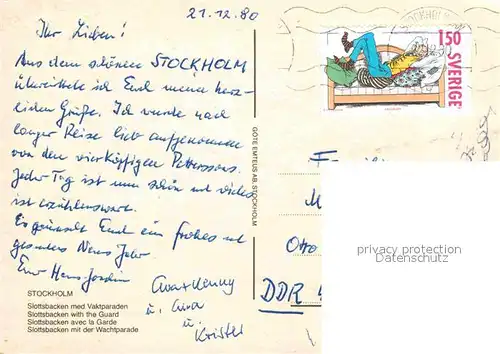 21.12.80
Ihr Lieben!
Aus dem schönen STOCKHOLM
übermittele ich Euch meine herz-
lichen Grüße. Ich wurde nach
langer Reise lieb aufgenommen
von den vierköpfigen Petterssons.
Jeder Tag ist nun schön und vieles
ist erzählenswert.
Es grüsst Euch ein frohes und
gesundes Neues Jahr
Euer Hans-Joachim
u.
u.
Krister
STOCKHOLM
Slottsbacken med Vaktparaden
Slottsbacken with the Guard
Slottsbacken avec la Garde
Slottsbacken mit der Wachtparade
GÖTE EMTEUS AB, STOCKHOLM
STOCKHOLM
150
SVERIGE
Otto
DDR
privacy protection
Datenschutz